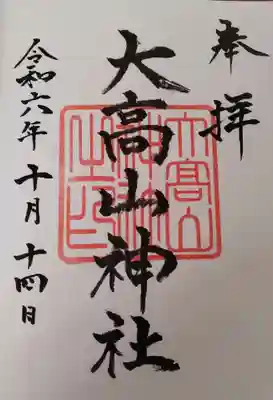 奉拝
大高山神社
令和六年十月十四日
大高山神社之印